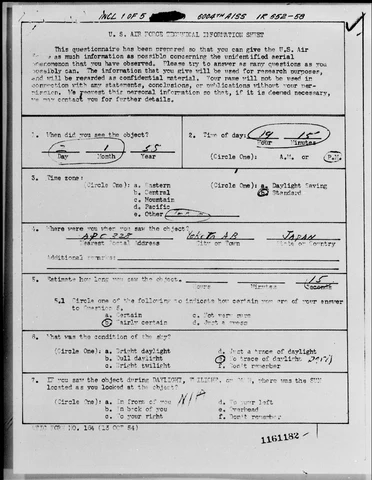 INCL 1 OF 5 6004th AISS IR 852-58
U. S. AIR FORCE TECHNICAL INFORMATION SHEET
This questionnaire has been prepared so that you can give the U.S. Air
Force as much information as possible concerning the unidentified aerial
phenomenon that you have observed. Please try to answer as many questions as you
possibly can. The information you give will be used for research purposes,
and will be regarded as confidential material. Your name will not be used in
connection with any statements, conclusions, or publications without your per-
mission. We request this personal information so that, if it is deemed necessary,
we may contact you for further details.
1. When did you see the object?
1
Day Month Year
2. Time of day: 19 15
Hour Minutes
(Circle One): A.M. or P.M.
3. Time zone:
(Circle One): a. Eastern
b. Central
c. Mountain
d. Pacific
e. Other
(Circle One): a. Daylight Saving
b. Standard
4. Where were you when you saw the object?
APO 328 Yokota AB JAPAN
Nearest Postal Address City or Town State or Country
Additional remarks:
5. Estimate how long you saw the object. 15
Hours Minutes Seconds
5.1 Circle one of the following to indicate how certain you are of your answer
to Question 5.
a. Certain c. Not very sure
b. Fairly certain d. Just a guess
6. What was the condition of the sky?
(Circle One): a. Bright daylight d. Just a trace of daylight
b. Dull daylight e. No trace of daylight
c. Bright twilight f. Don't remember
7. IF you saw the object during DAYLIGHT, TWILIGHT, or DAWN, where was the SUN
located as you looked at the object?
(Circle One): a. In front of you N/A d. To your left
b. In back of you e. Overhead
c. To your right f. Don't remember
ATIC FORM NO. 164 (13 OCT 54)
1161182